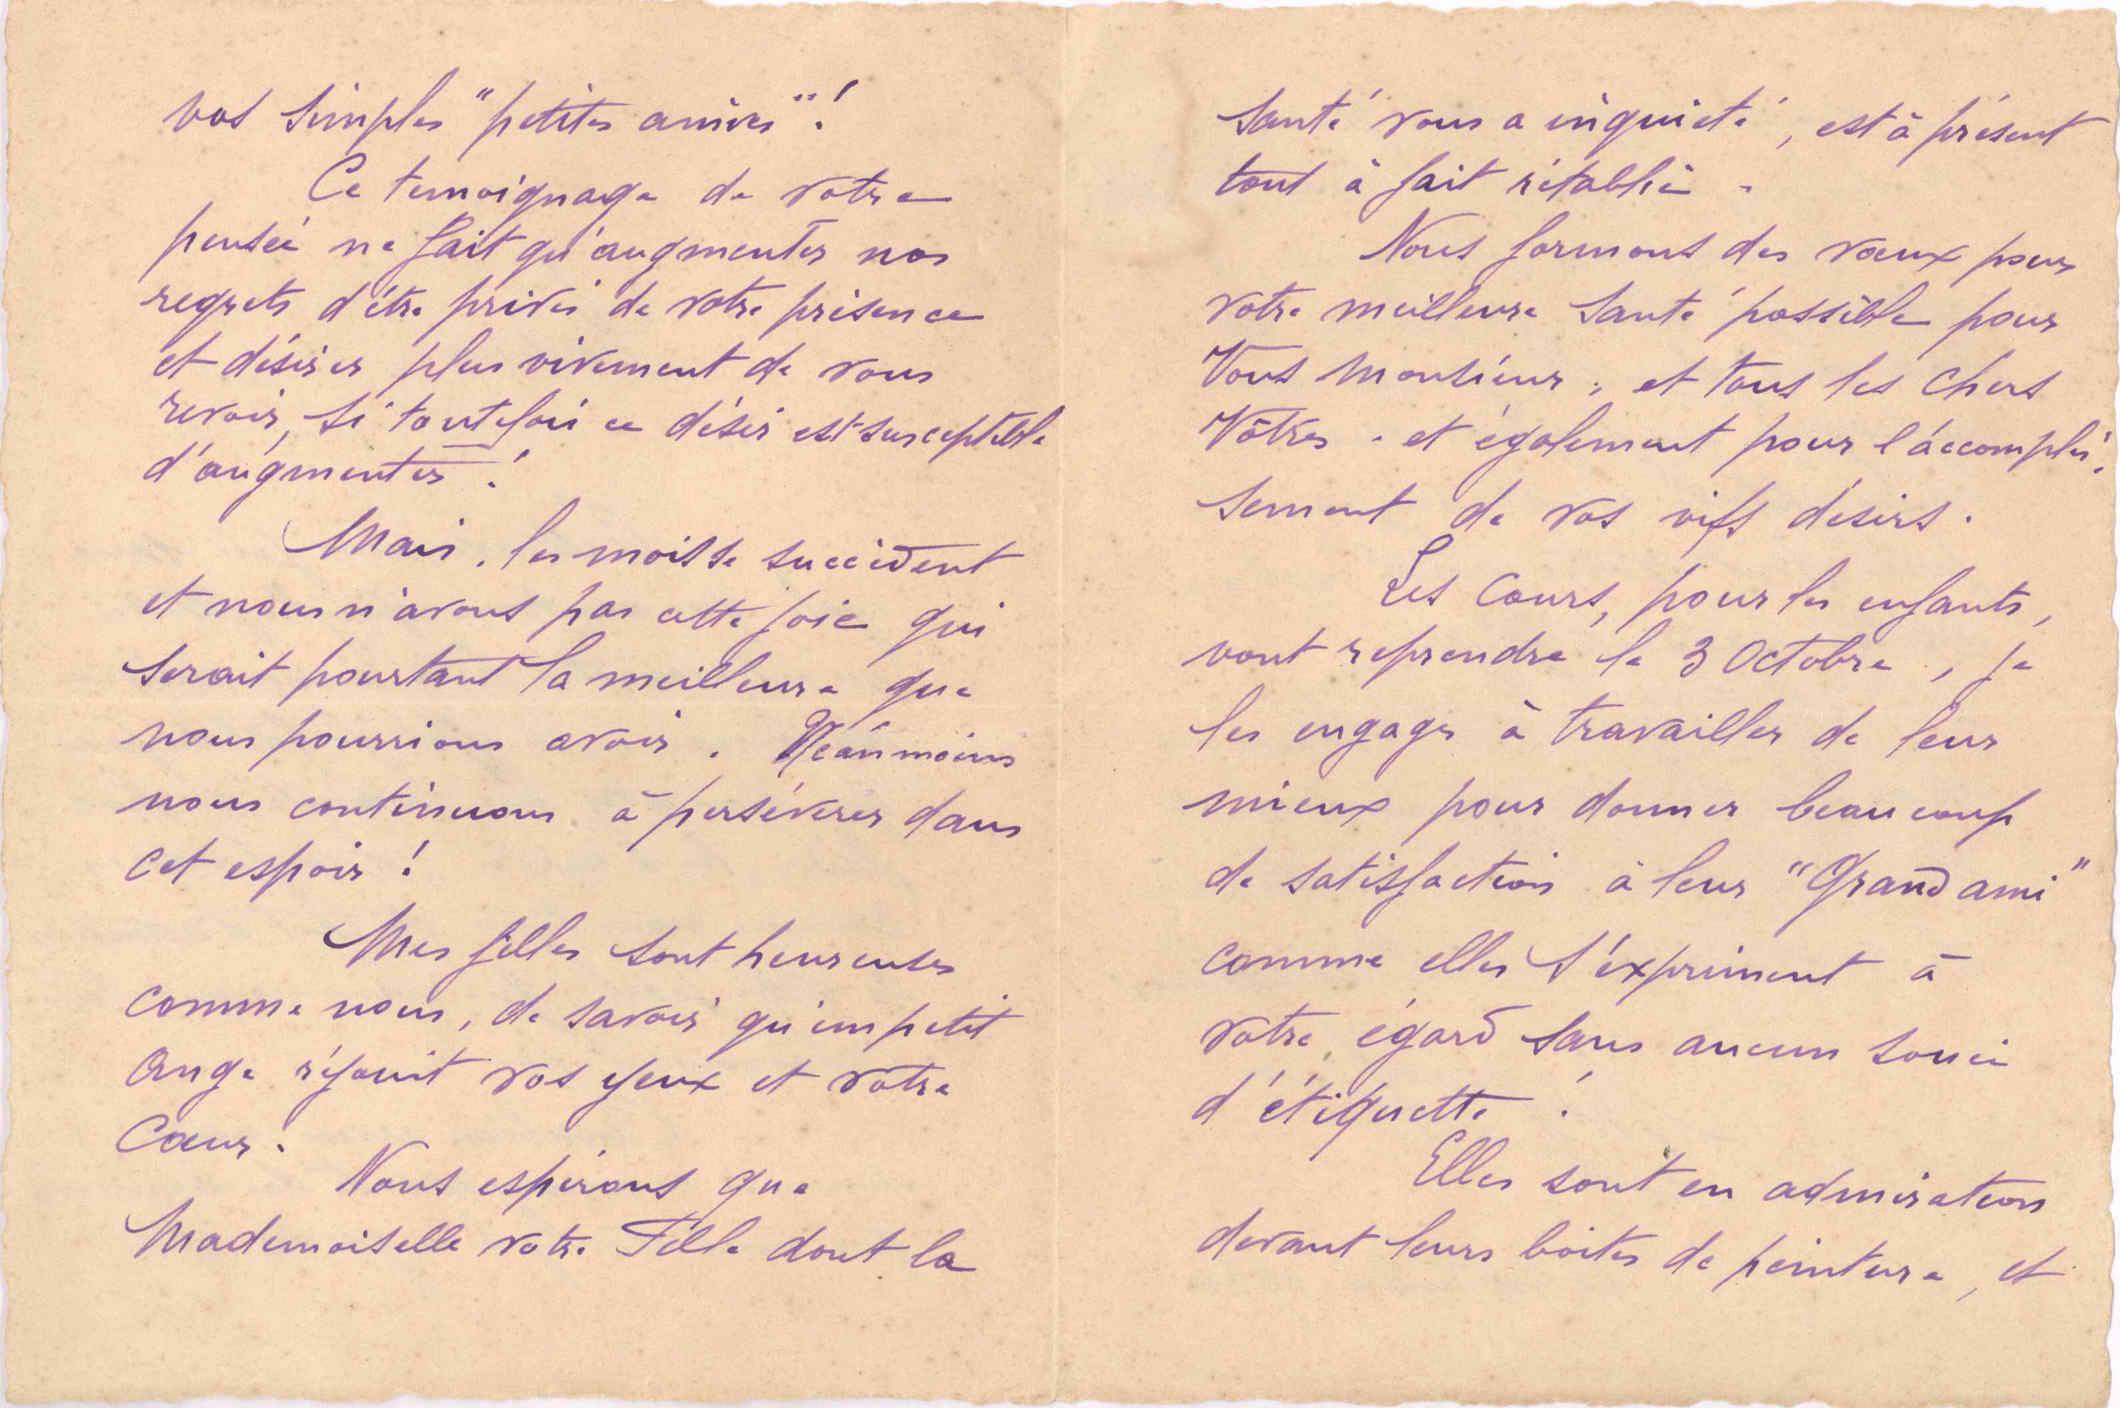 vos simples "petites amies"!
Ce temoignage de votre
pensée ne fait qu'augmenter nos
regrets d'être privés de votre présence
et désirer plus vivement de vous
revoir, si toutefois ce désir est susceptible
d'augmenter !
Mais, les mois se succèdent
et nous n'avons pas cette joie qui
serait pourtant la meilleure que
nous pourrions avoir. Néanmoins
nous continuons à persévérer dans
cet espoir !
Mes filles sont heureuses
comme nous, de savoir qu'un petit
Ange réjouit vos yeux et votre
Coeur.
Nous espérons que
Mademoiselle votre Fille dont la
santé vous a inquiété, est à présent
tout à fait rétablie.
Nous formons des voeux pour
votre meilleure santé possible pour
Vous Monsieur, et tous les Chers
Vôtres. et également pour l'accomplis-
sement de vos vifs désirs.
Les Cours, pour les enfants,
vont reprendre le 3 Octobre, je
les engage à travailler de leur
mieux pour donner beaucoup
de satisfaction à leur "Grand ami"
comme elles s'expriment à
votre égard sans aucun souci
d'étiquette !
Elles sont en admiration
devant leurs boites de peinture, et